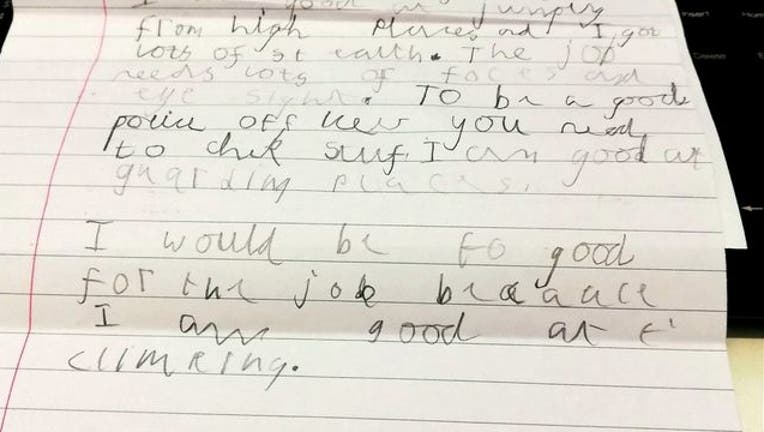 good at jumping
from high places and I got
lots of st ealth. The job
needs lots of foces and
eye sight. TO be a good
police officer you need
to chek stuf. I am good at
guarding places.
I would be so good
for the job because
I am good at
climbing.